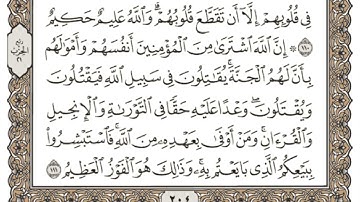 فِى قُلُوبِهِمْ إِلَّآ أَن تَقَطَّعَ قُلُوبُهُمْ ۗ وَٱللَّهُ عَلِيمٌ حَكِيمٌ
١١٠ ۞ إِنَّ ٱللَّهَ ٱشْتَرَىٰ مِنَ ٱلْمُؤْمِنِينَ أَنفُسَهُمْ وَأَمْوَٰلَهُم
بِأَنَّ لَهُمُ ٱلْجَنَّةَ ۚ يُقَٰتِلُونَ فِى سَبِيلِ ٱللَّهِ فَيَقْتُلُونَ
وَيُقْتَلُونَ ۖ وَعْدًا عَلَيْهِ حَقًّا فِى ٱلتَّوْرَىٰةِ وَٱلْإِنجِيلِ
وَٱلْقُرْءَانِ ۚ وَمَنْ أَوْفَىٰ بِعَهْدِهِۦ مِنَ ٱللَّهِ ۚ فَٱسْتَبْشِرُوا۟
بِبَيْعِكُمُ ٱلَّذِى بَايَعْتُم بِهِۦ ۚ وَذَٰلِكَ هُوَ ٱلْفَوْزُ ٱلْعَظِيمُ ١١١
ربع
الحزب
٢١
٢٠٤